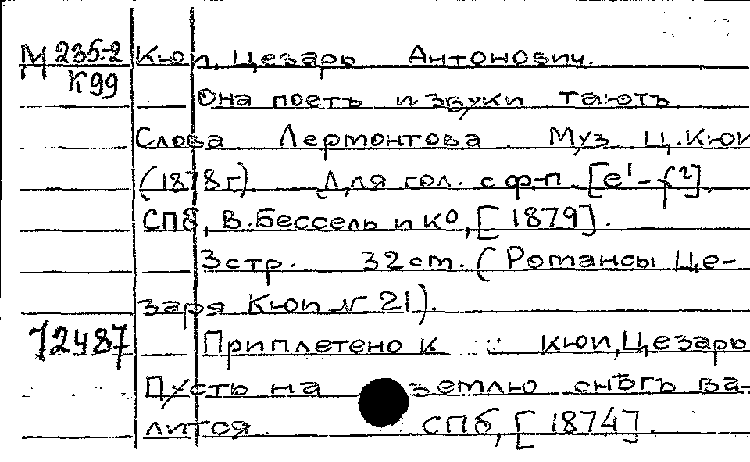 М 235-2 Кюи, Цезарь Антонович.
К99
Она поетъ и звуки таютъ
Слова Лермонтова. Муз Ц.Кюи
(1878г) Для гол. с ф-п. [e¹-f²]
СПб, В.Бессель и К⁰, [1879].
3стр. 32ст. (Романсы Це-
заря Кюи №21).
12487 Приплетено к кюи, Цезарь
Пусть на землю снѣгъ ва-
лится СПб, [1874].